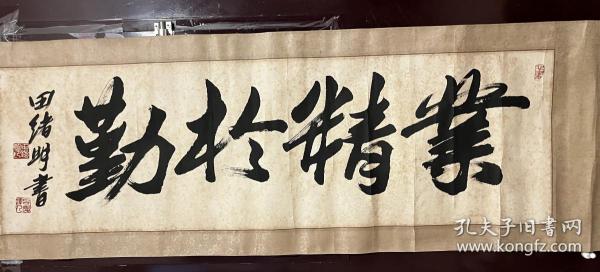 業精於勤
田绪明書
孔夫子旧書网
www.kongfz.com